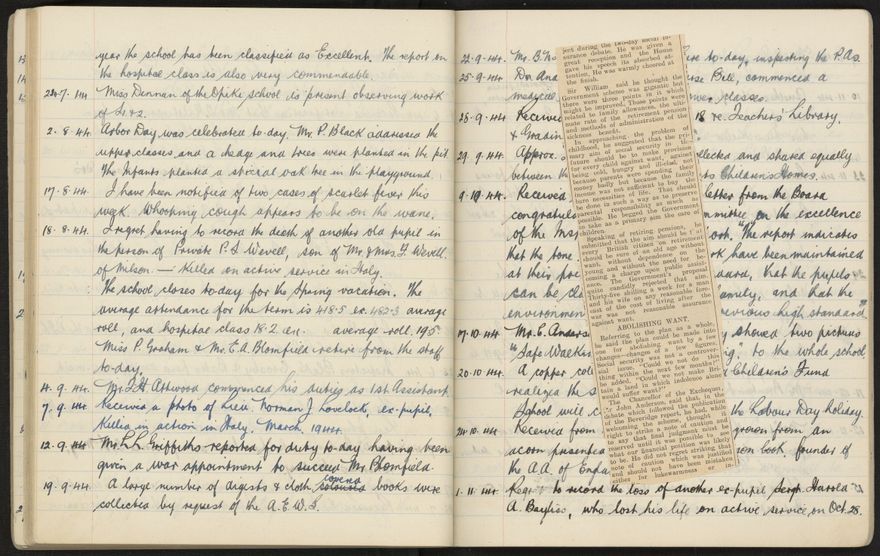 year the school has been classified as Excellent. The report on
the hospital class is also very commendable.
24.7.44 Miss Denman of the Opiki school is present observing work
of Std 2.
2.8.44. Arbor Day was celebrated to-day. Mr. P. Black addressed the
upper classes and a hedge and trees were planted in the pit.
The Infants planted a special oak tree in the playground.
17.8.44. I have been notified of two cases of scarlet fever this
week. Whooping cough appears to be on the wane.
18.8.44. I regret having to record the death of another old pupil in
the person of Private P. S. Wevell, son of Mr & Mrs. F. Wevell.
of Milson. — Killed on active service in Italy.
The school closes to-day for the Spring vacation. The
average attendance for the term is 418.5 ex. 482.3 average
roll, and hospital class 18.2 ex. average roll 19.5
Miss P. Graham & Mr. E. A. Blomfield retire from the staff
to-day.
4.9.44. Mr. Attwood commenced his duties as 1st Assistant
7.9.44. Received a photo of Lieu. Norman J Lovelock, ex-pupil,
Killed in action in Italy. March 1944.
12.9.44 Mr L. L. Griffiths reported for duty to-day having been
given a war appointment to succeed Mr. Blomfield.
19.9.44. A large number of digests & cloth covered books were
collected by request of the A.E.W.S.
22.9.44. Mr. B. to-day, inspecting the P.As.
25.9.44 Dr. And Bell, commenced a
medical classes.
25.9.44 Received 18 re. Teachers' Library,
& Gradin
29.9.44. Approx. collected and shared equally
between the Children's Homes.
9.10.44. Received letter from the Board
congratula committee on the excellence
of the Ins "The report indicates
that the tone have been maintained
at their pre that the pupils
can be cla and that the
environmen previous high standard"
17.10.44. Mr. C. Anders showed two pictures
"Safe Walkin to the whole school
20.10.44 A copper Children's Fund
realized the
School will c the Labour Day holiday.
24.10.44 Received from grown from an
acorn presented founder of
the A.A. of Engla
1.11.44 Regret to record the loss of another ex-pupil Sergt. Harold
A. Bayliss, who lost his life on active service on Oct. 28.
ject during the two-day social in-
surance debate. He was given a
great reception and the House
gave his speech its absorbed at-
tention. He was warmly cheered at
the finish.
Sir William said he thought the
Government scheme was gigantic but
there were three points in it which
might be improved. Those points were
related to family allowances, the ulti-
mate rate of the retirement pension
and methods of administration of the
sickness benefit.
In approaching the problem of
childhood, he suggested that the pri-
mary aim of social security in the
future should be to make provision
for every child against want, against
being cold, hungry and ill-clad. He
knew parents were spending their
money badly but because the family
income was not sufficient to buy food
parental responsibility as much as
possible. He begged the Government
to take as a primary aim the care of
children.
Speaking of retiring pensions, he
submitted that the aim should be that
every British citizen on retirement
would be sure of an old age without
want, without dependence on the
young and without the need for be-
coming a charge upon public assist-
ance. The Government proposal
quite candidly rejected this aim.
Thirty-five shilling a week for a man
and his wife on any reasonable fore-
cast of the cost of living after the
war was not reasonable assurance
against want.
ABOLISHING WANT.
Referring to the plan as a whole,
he said the plan could be made a plan
for abolishing want by a few
changes—changes of a few figures.
Social security was not a controver-
sial issue. "Could we not do this
thing within the next few months?"
he added. "Could we not make Bri-
tain a land in which indolence alone
would suffer want?"
The Chancellor of the Exchequer,
Sir John Anderson, said that, in the
debate which followed the publication
of the Beveridge report, he had, while
welcoming the scheme, thought it
right to strike a note of caution and
to say that final judgment must be
reserved until it was possible to see
what our financial position was likely
to be. He did not regret striking that
note of caution which was justified
and should not have been mistaken
either for lukewarmness or